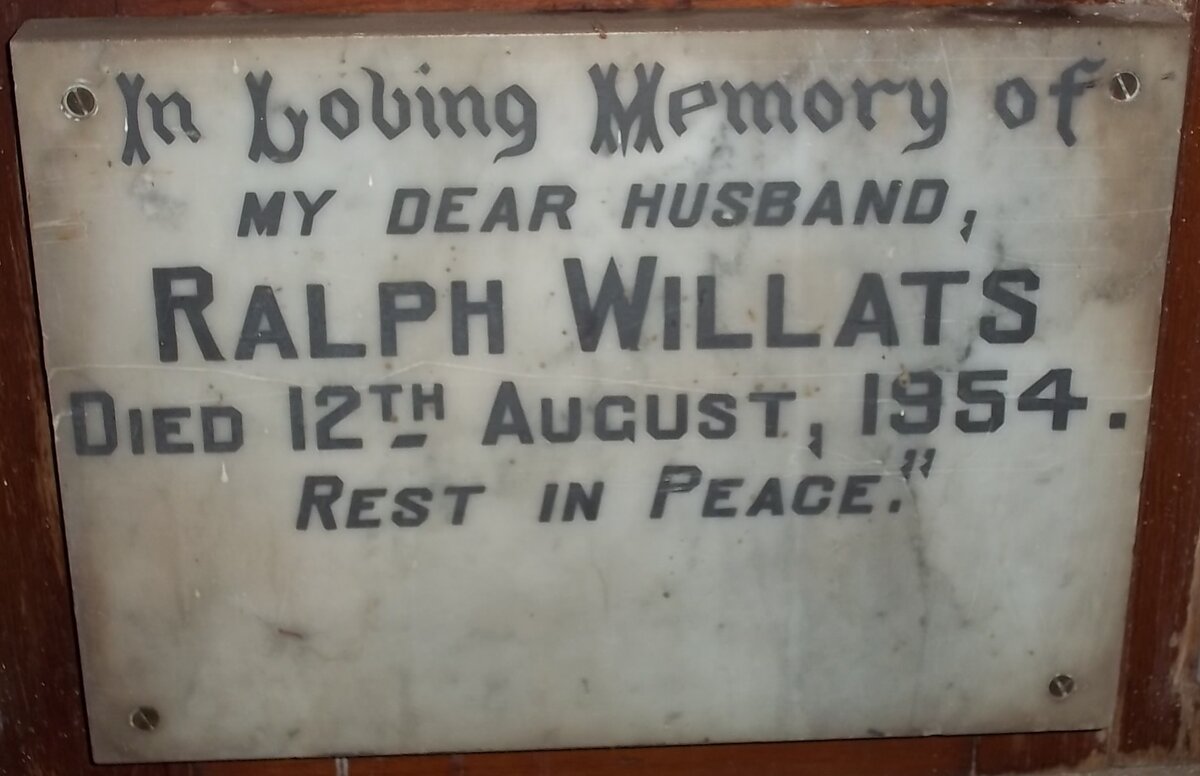 In Loving Memory of
MY DEAR HUSBAND,
RALPH WILLATS
DIED 12TH AUGUST, 1954.
REST IN PEACE."